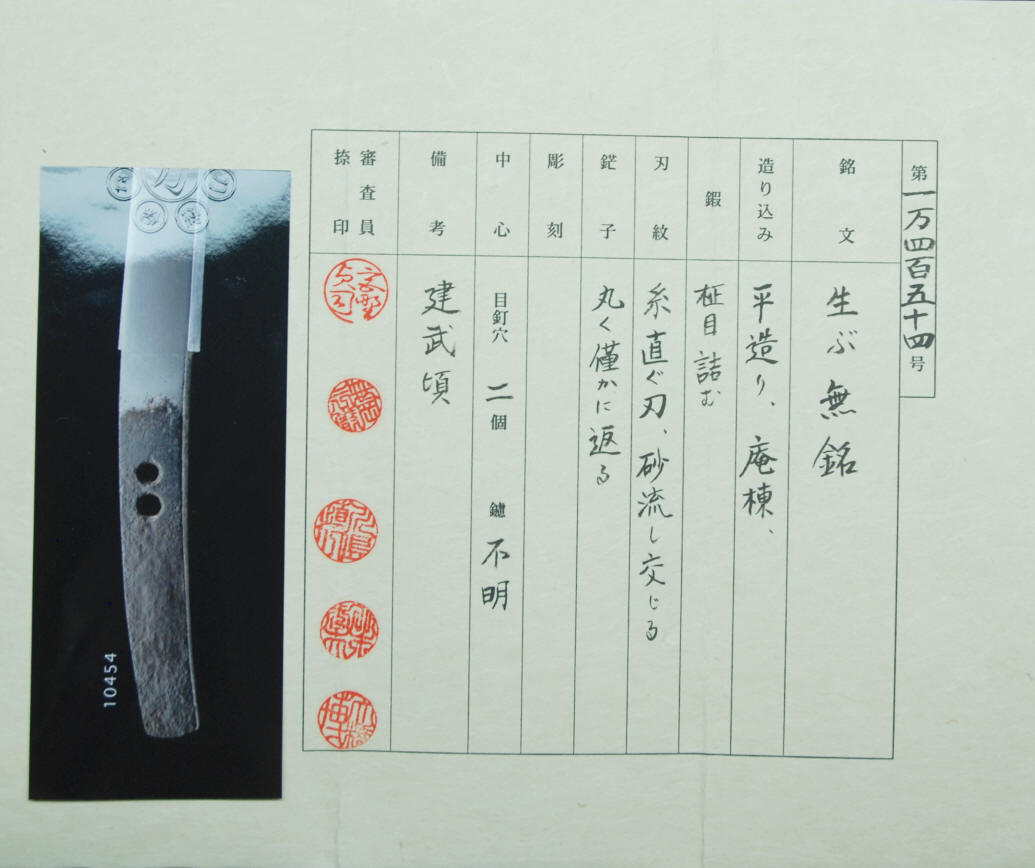 第一万四百五十四号
銘文
生ぶ無銘
造り込み
平造り、庵棟、
鍜
柾目詰む
刃紋
糸直ぐ刃、砂流し交じる
鋩子
丸く僅かに返る
彫刻
中心
目釘穴 二個 鑢 不明
備考
建武頃
審査員
捺印
10454